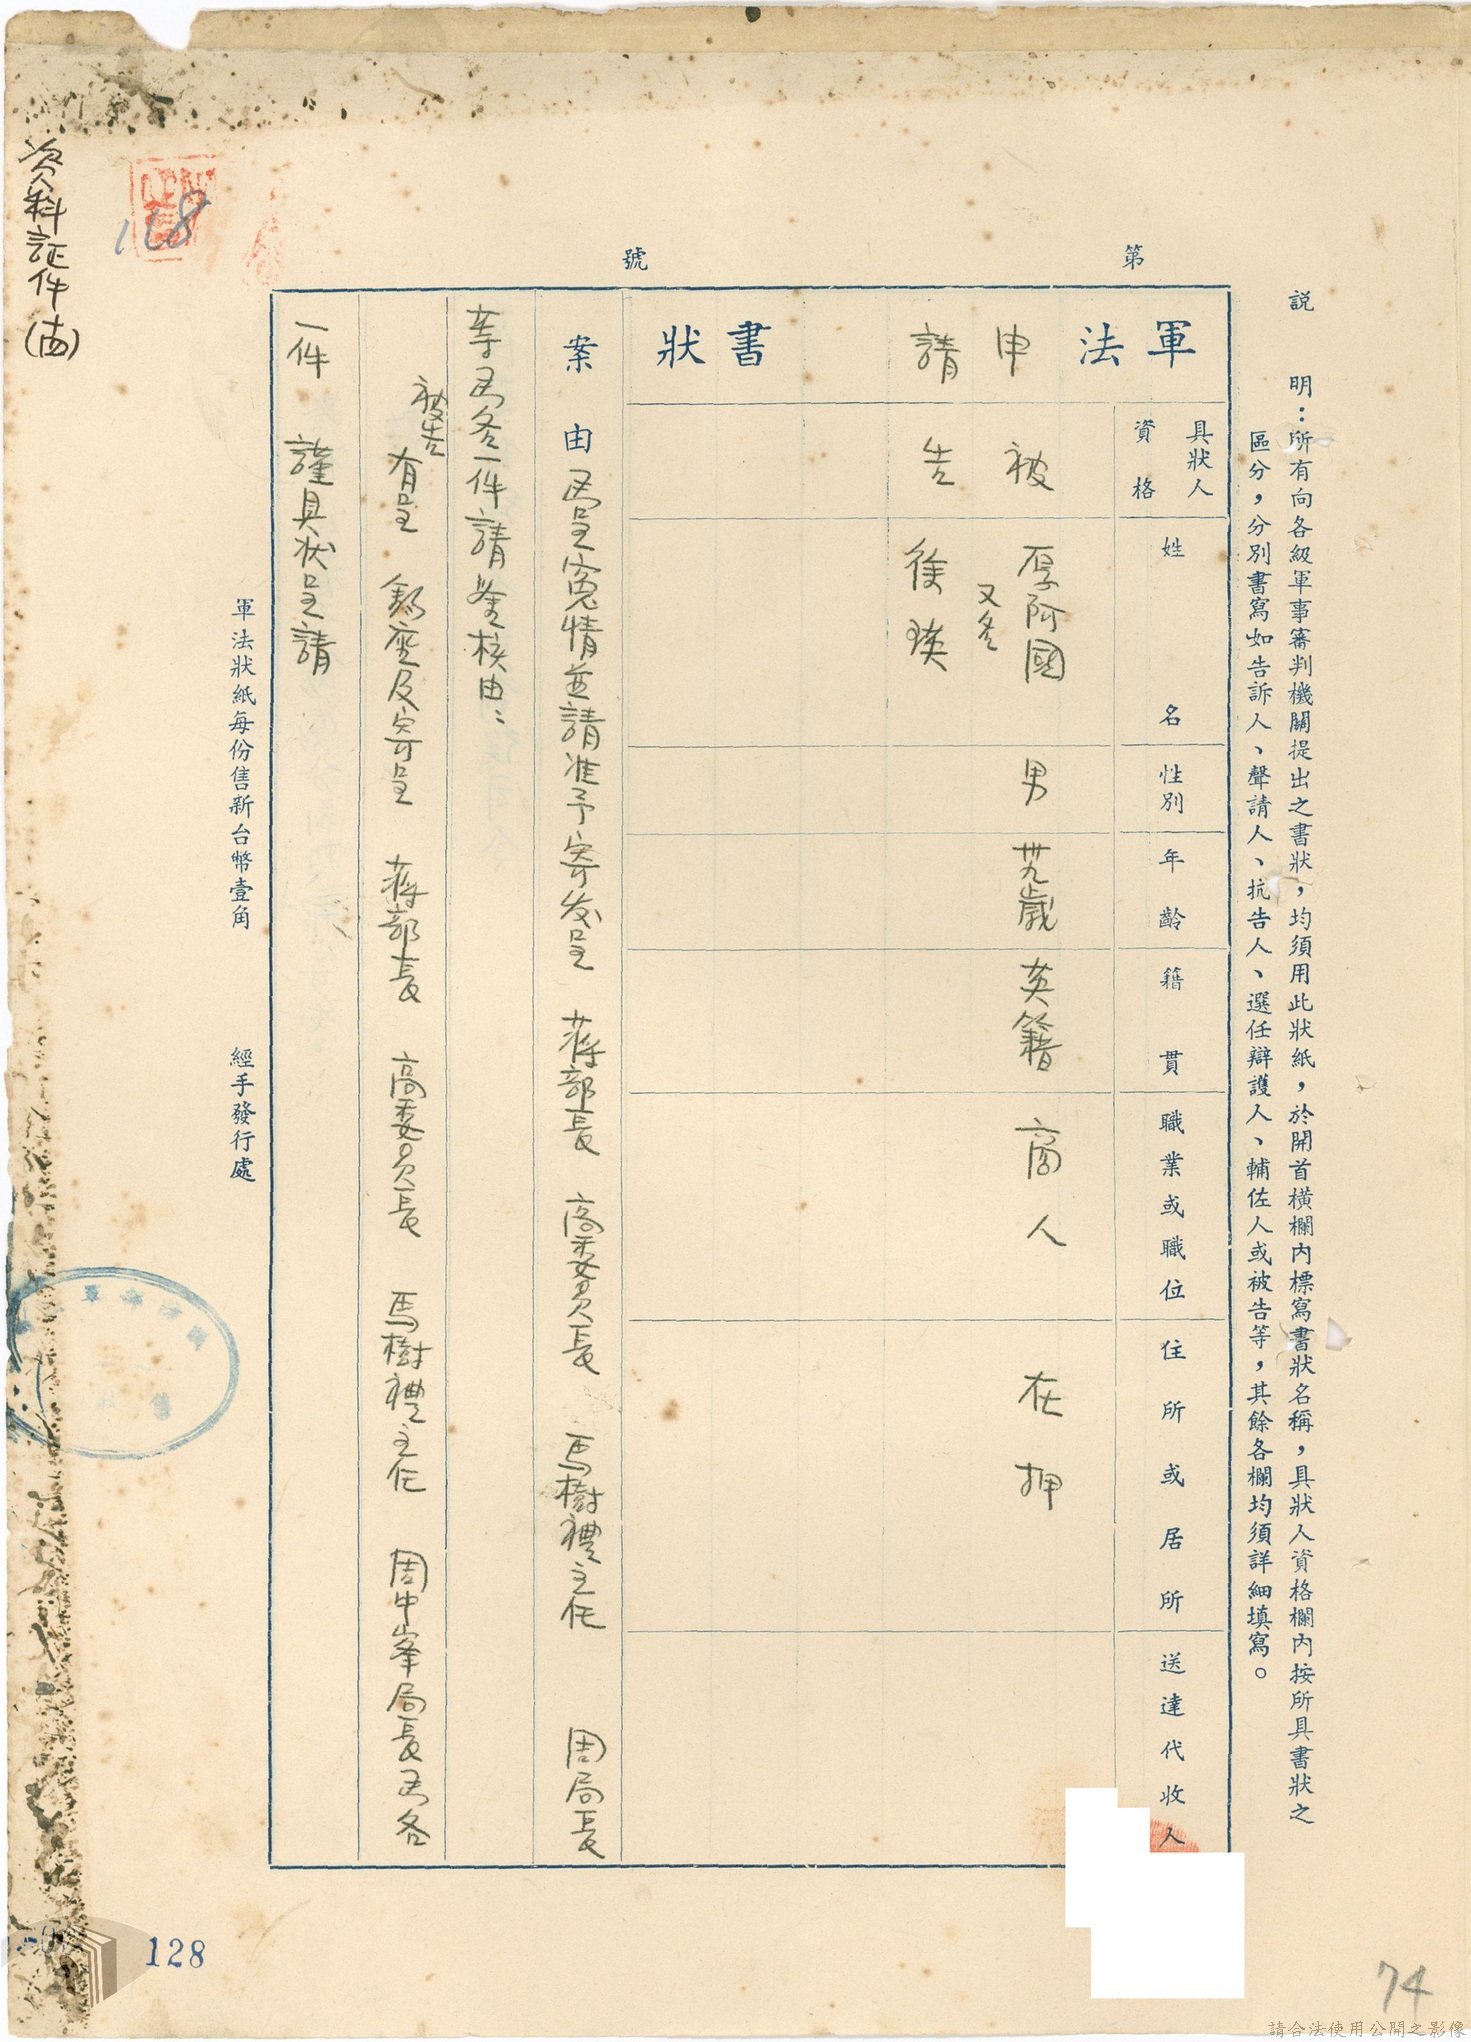 第 號
說 明：所有向各級軍事審判機關提出之書狀，均須用此狀紙，於開首橫欄內標寫書狀名稱，具狀人資格欄內按所具書狀之
區分，分別書寫如告訴人、聲請人、抗告人、選任辯護人、輔佐人或被告等，其餘各欄均須詳細填寫。
軍法 申請 書狀
具狀人資格 姓名 性別 年齡 籍貫 職業或職位 住所或居所 送達代收人
被 厚阿國 男 卅九歲 英籍 商人 在押
又名
告 徐瑛
案由 為呈寃情並請准予寄发呈 蔣部長 高委員長 馬樹禮主任 周局長
等函各一件請鉴核由：
被告 有呈 鈞座及寄呈 蔣部長 高委員長 馬樹禮主任 周中峯局長函各
一件 謹具狀呈請
軍法狀紙每份售新台幣壹角 經手發行處
資料証件
118
128
74
請合法使用公開之影像